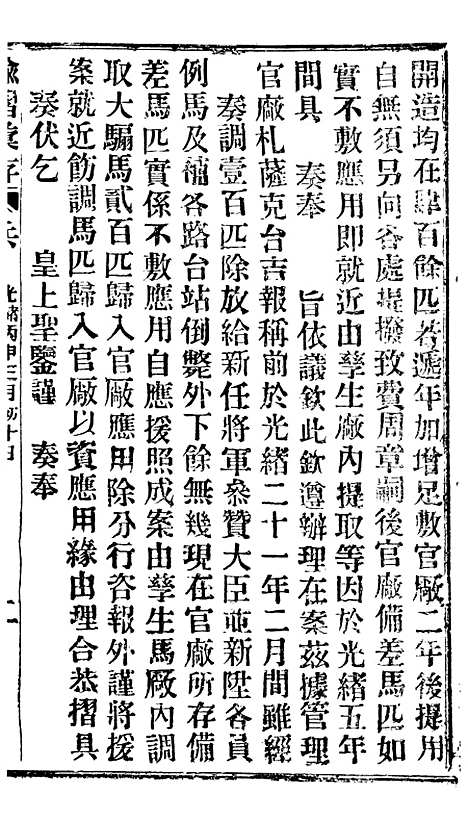 開造均在肆百餘匹若遞年加增足敷官廠二年後提用
自無須另向各處提撥致費周章嗣後官廠備差馬匹如
實不敷應用即就近由孳生廠內提取等因於光緒五年
間具　奏奉　旨依議欽此欽遵辦理在案茲據管理
官廠札薩克台吉報稱前於光緒二十一年二月間雖經
奏調壹百匹除放給新任將軍叅贊大臣並新陞各員
例馬及補各路台站倒斃外下餘無幾現在官廠所存備
差馬匹實係不敷應用自應援照成案由孳生馬厰內調
取大騸馬貳百匹歸入官厰應用除分行咨報外謹將援
案就近飭調馬匹歸入官厰以資應用緣由理合恭摺具
奏伏乞　皇上聖鑒謹　奏奉
諭摺彙存　光緒丙申三月初十日